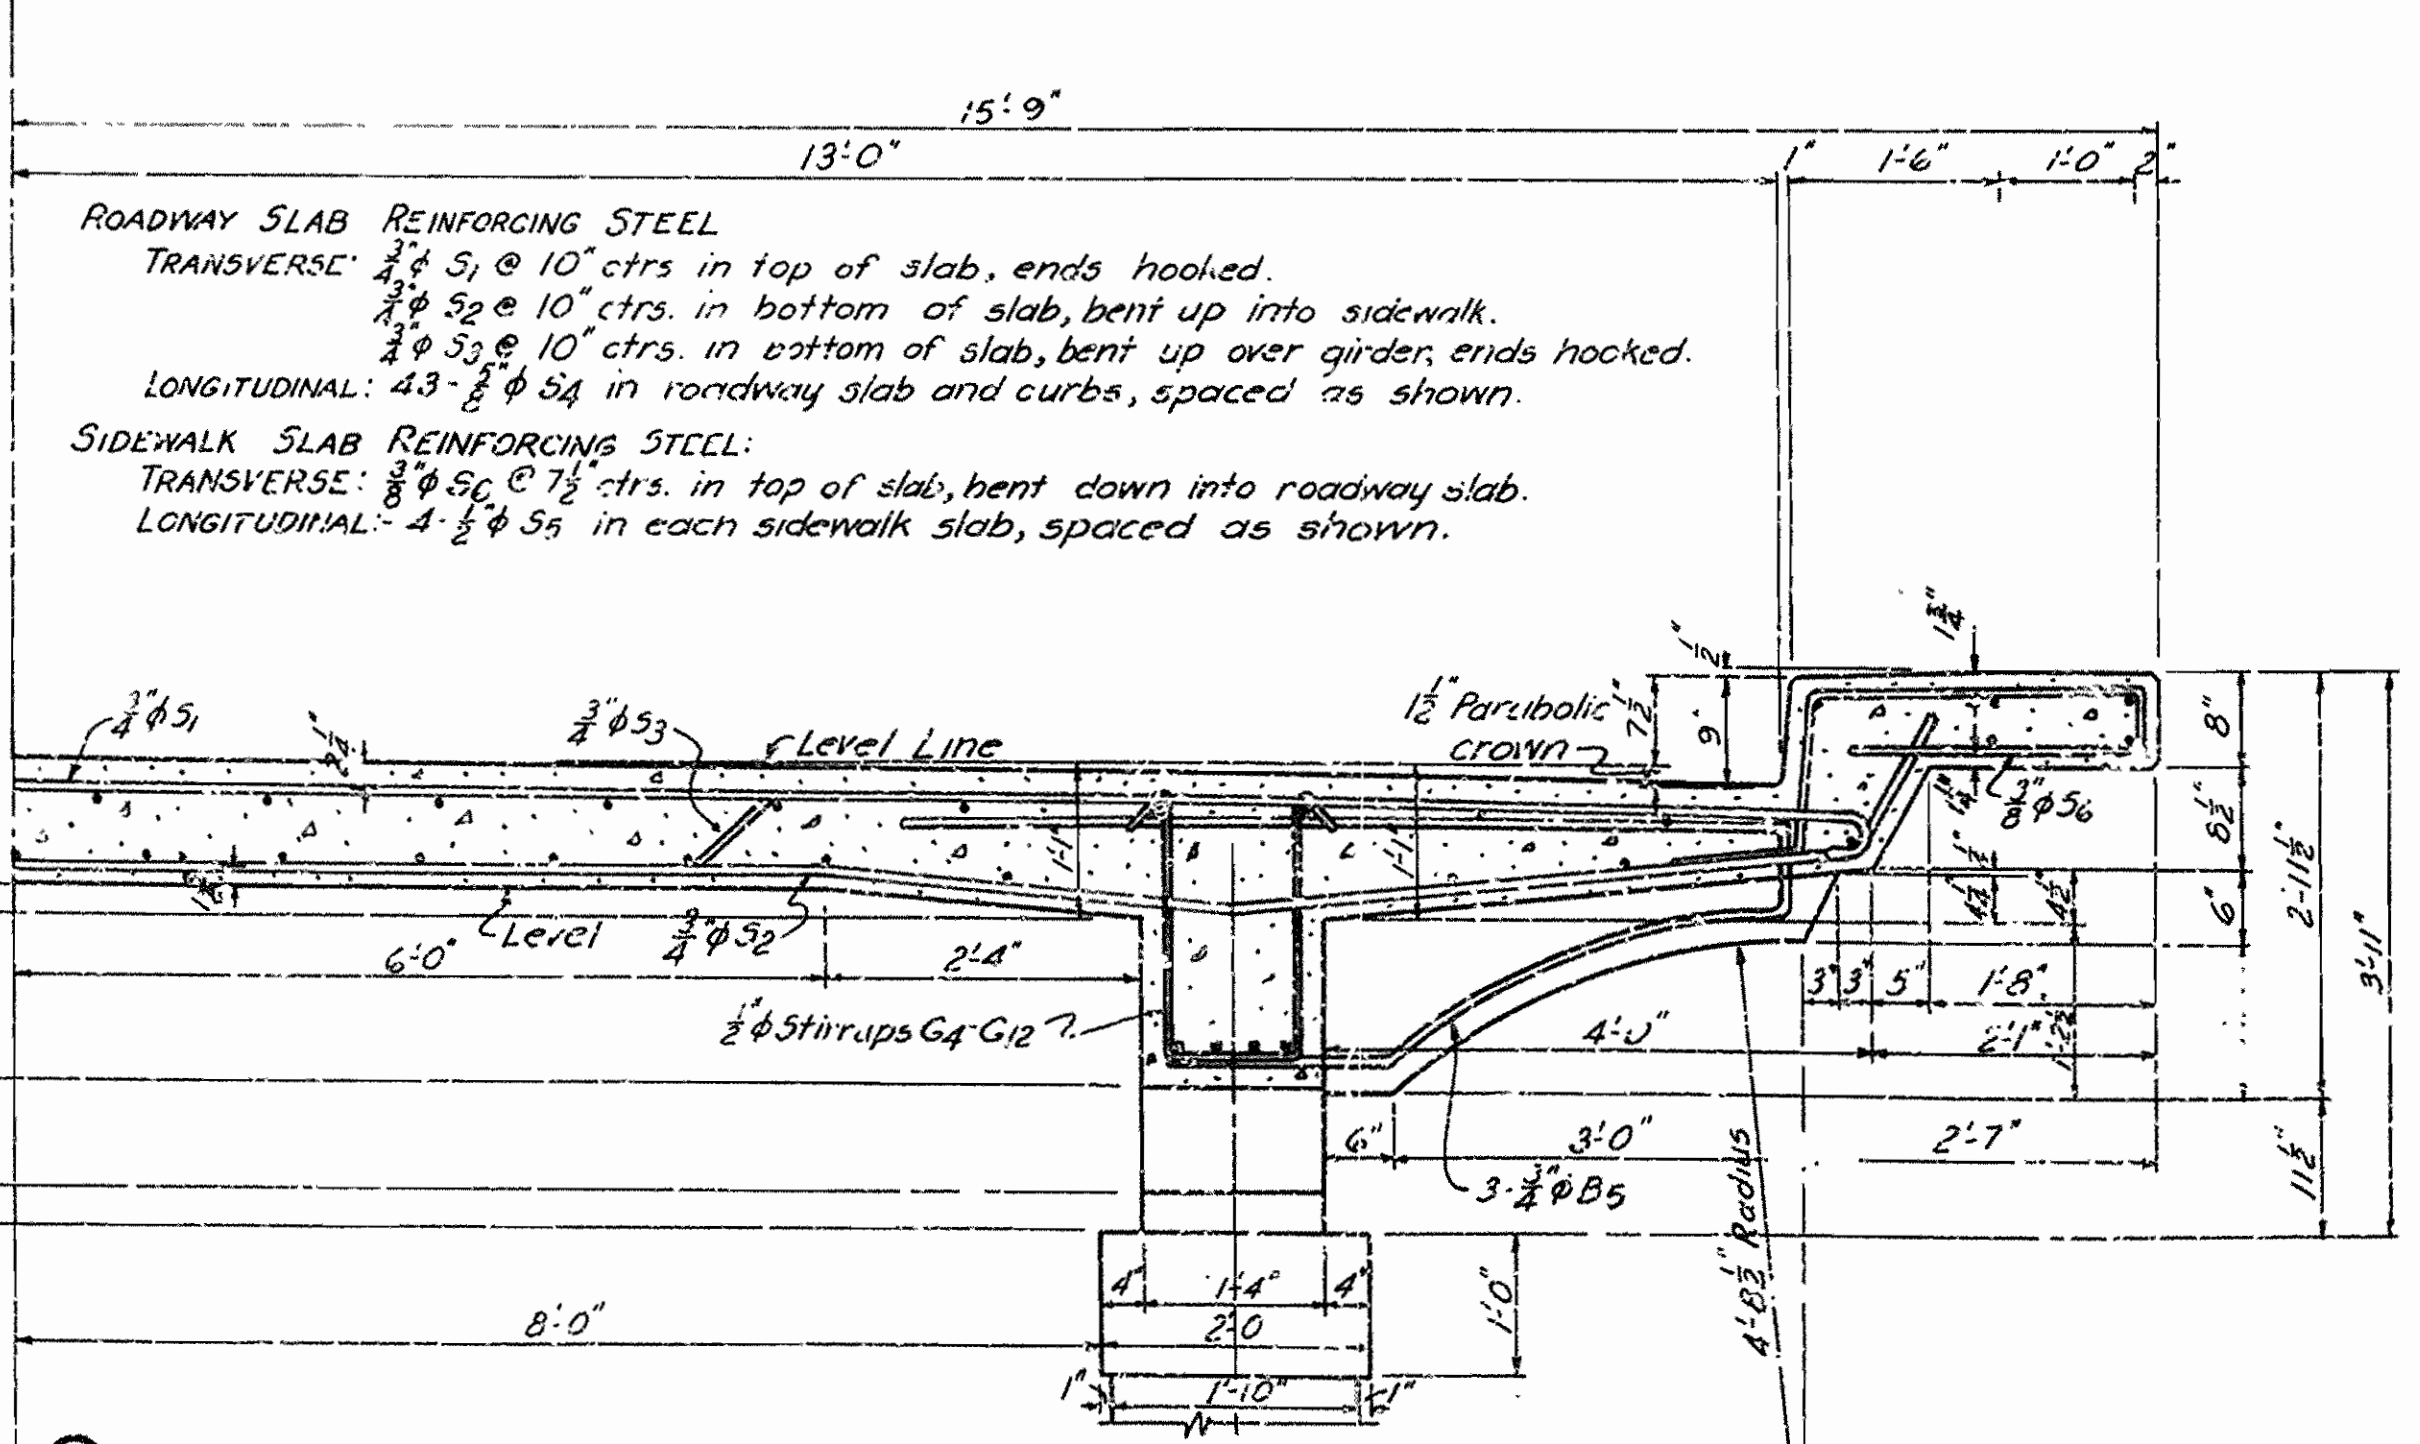 15'-9"
13'-0" 1" 1'-6" 1'-0" 2"
ROADWAY SLAB REINFORCING STEEL
TRANSVERSE: 3/4"ϕ S1 @ 10" ctrs in top of slab, ends hooked.
3/4"ϕ S2 @ 10" ctrs. in bottom of slab, bent up into sidewalk.
3/4"ϕ S3 @ 10" ctrs. in bottom of slab, bent up over girder, ends hooked.
LONGITUDINAL: 43-5/8"ϕ S4 in roadway slab and curbs, spaced as shown.
SIDEWALK SLAB REINFORCING STEEL:
TRANSVERSE: 3/8"ϕ S6 @ 7 1/2" ctrs. in top of slab, bent down into roadway slab.
LONGITUDINAL:- 4-1/2"ϕ S5 in each sidewalk slab, spaced as shown.
1 3/4"
1/2"
3/4"ϕS1
2 1/4"
3/4"ϕS3
Level Line
1 1/2" Parabolic
crown
7 1/2"
9"
8"
1'-1"
1'-1"
3/8"ϕS6
6"
2'-11 1/2"
3'-11"
4 1/2"
6'-0"
Level
3/4"ϕS2
2'-4"
3" 3" 5" 1'-8"
1/2"ϕ Stirrups G4-G12
4'-0" 2'-1"
1'-2 1/2"
6" 3'-0" 2'-7"
3-3/4"ϕB5
11 1/2"
4" 1'-4" 4"
1'-0"
8'-0" 2'-0
1" 1'-10" 1"